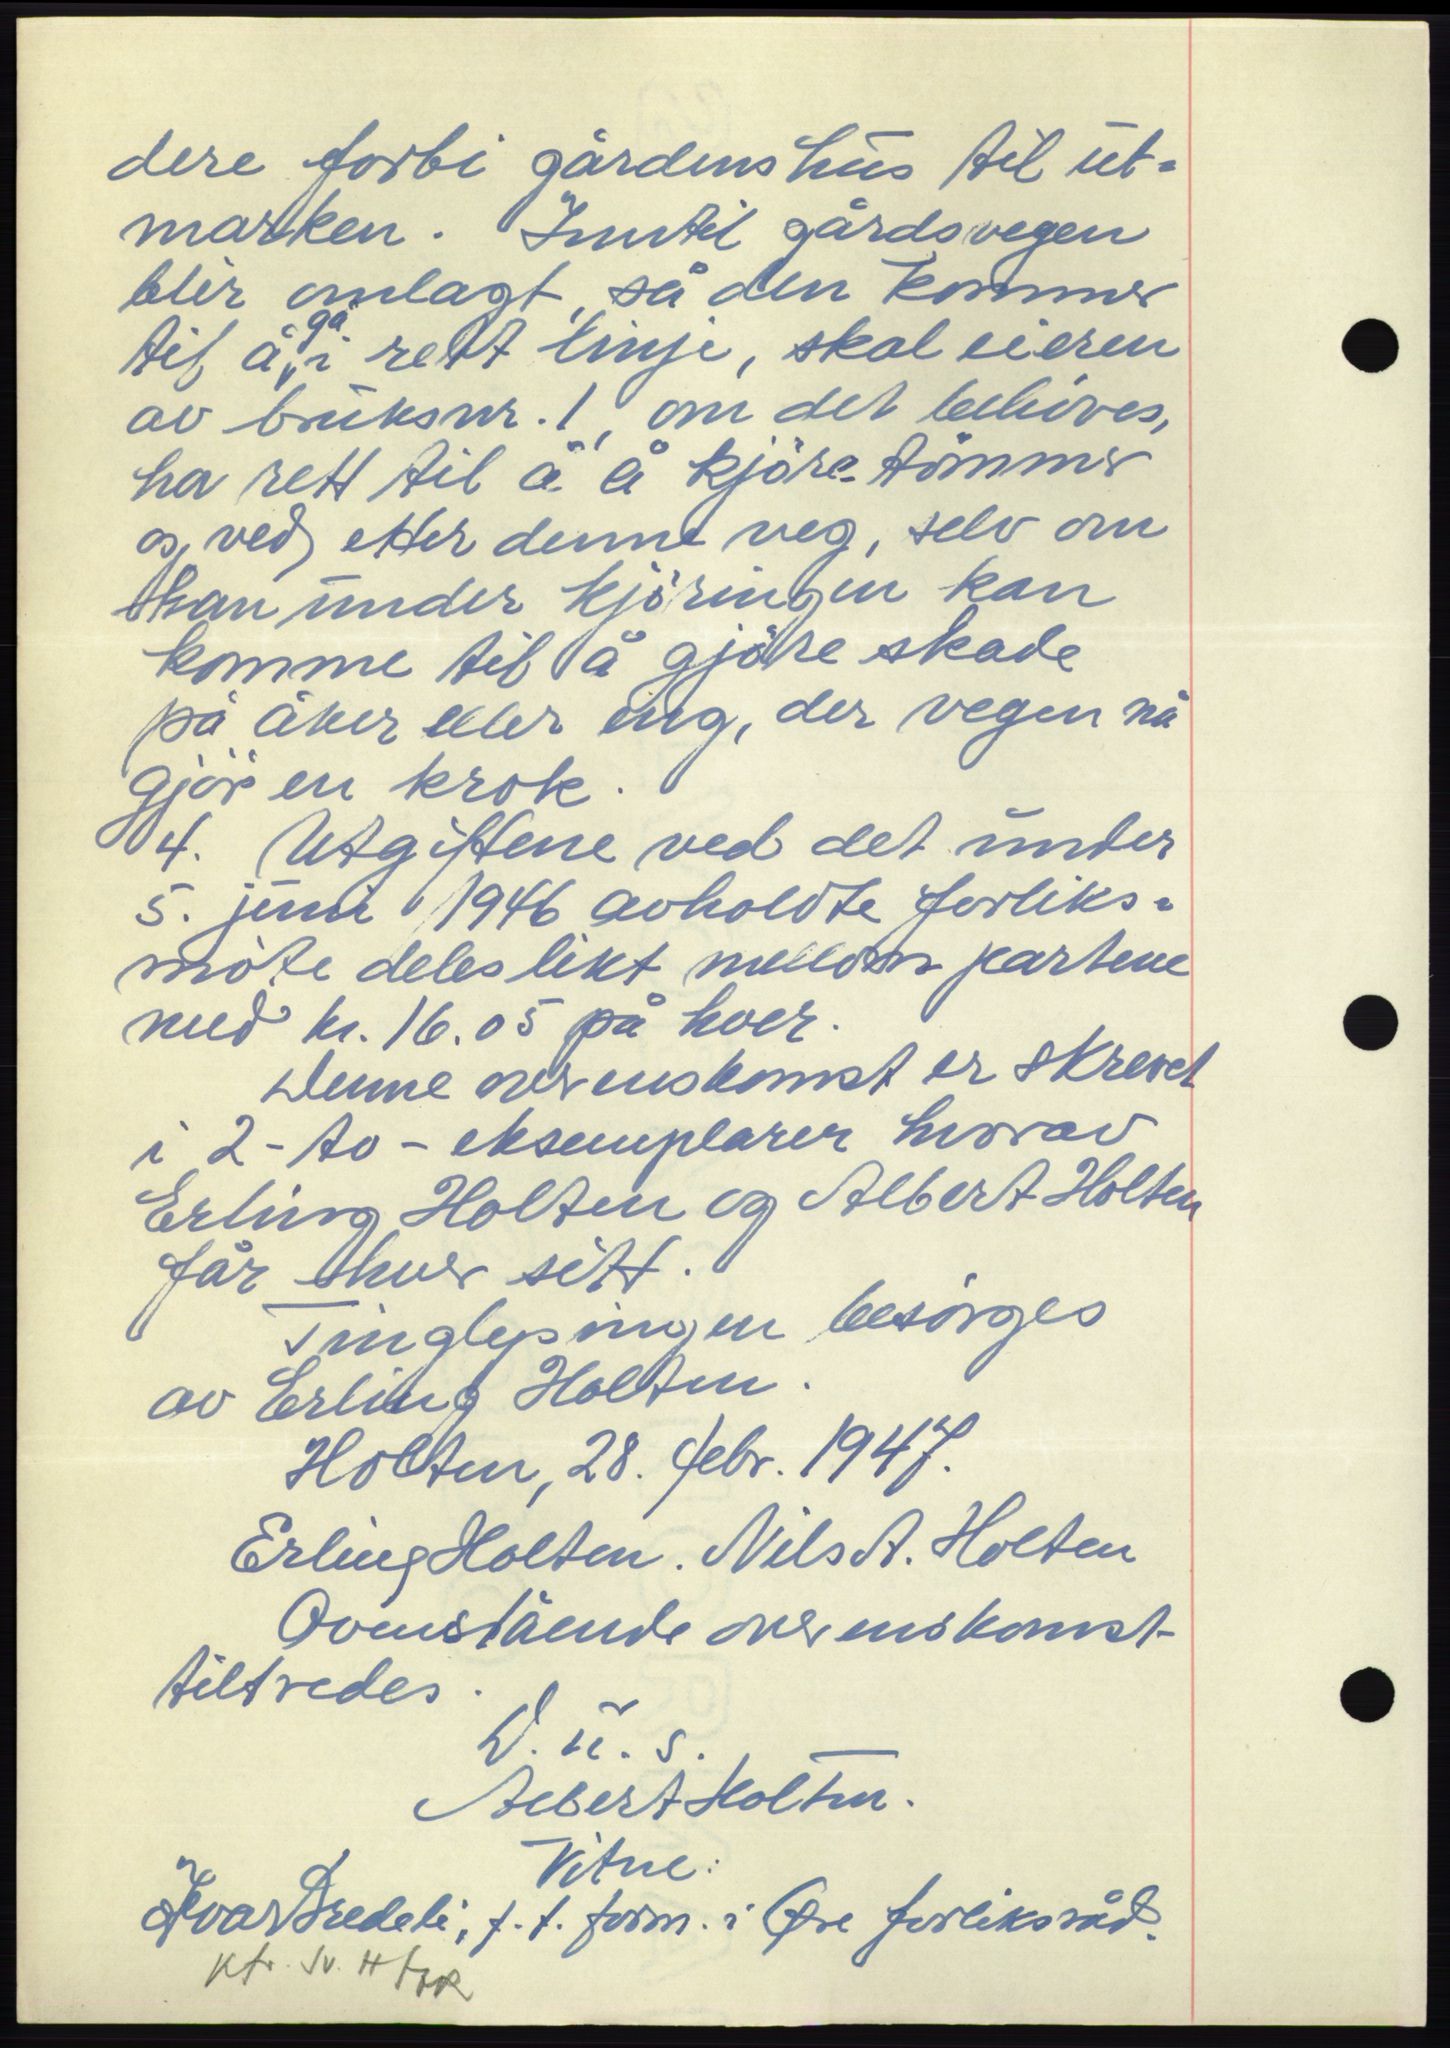 dere forbi gårdens hus til ut-
marken. Inntil gårdsvegen
blir omlagt, så den kommer
gå
til å i rett linje, skal eieren
av bruksnr. 1, om det behöves,
ha rett til å å kjöre tömmer
og ved etter denne veg, selv om
han under kjöringen kan
komme til å gjöre skade
på åker eller eng, der vegen nå
gjör en krok.
4. Utgiftene ved det under
5. juni 1946 avholdte forliks-
möte deles likt mellom partene
med kr. 16.05 på hver.
Denne overenskomst er skrevet
i 2 - to - eksemplarer hvorav
Erling Holten og Albert Holten
får hver sitt.
Tinglysingen besörges
av Erling Holten.
Holten, 28. febr. 1947.
Erling Holten. Nils A. Holten
Ovenstående overenskomst
tiltredes.
D. u. s.
Albert Holten.
Vitne:
Ivar Bredeli, f. t. form. i Øre forliksråd.